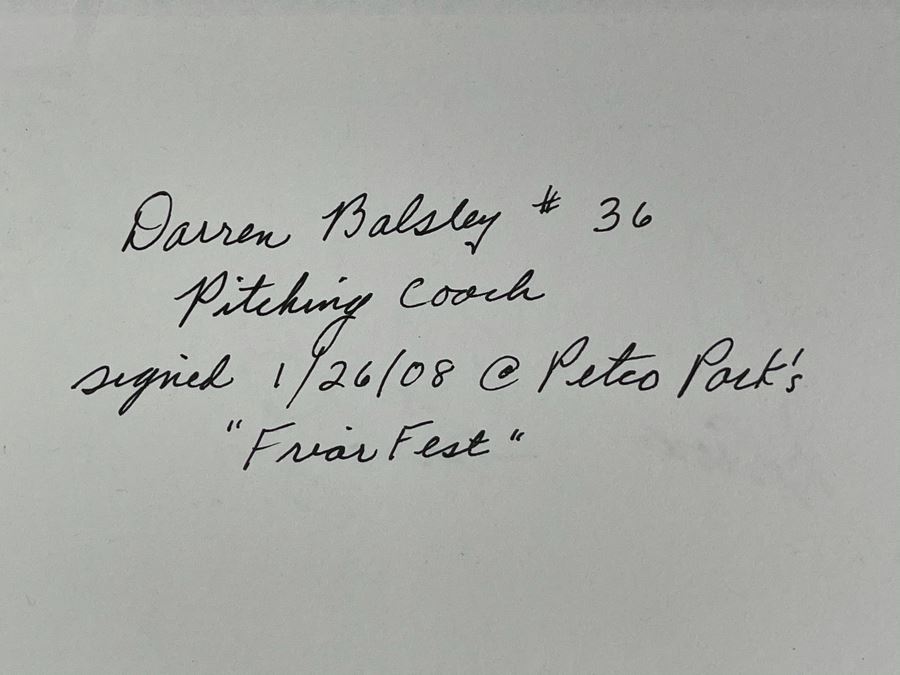 Darren Balsley # 36
Pitching Coach
signed 1/26/08 @ Petco Park's
"Friar Fest"